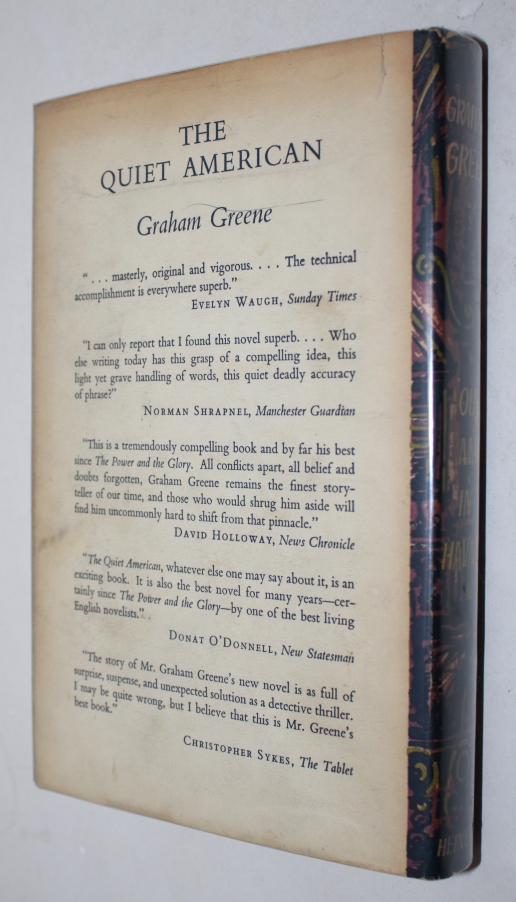 THE
QUIET AMERICAN
Graham Greene
“ . . . masterly, original and vigorous. . . . The technical
accomplishment is everywhere superb.”
EVELYN WAUGH, Sunday Times
“I can only report that I found this novel superb. . . . Who
else writing today has this grasp of a compelling idea, this
light yet grave handling of words, this quiet deadly accuracy
of phrase?”
NORMAN SHRAPNEL, Manchester Guardian
“This is a tremendously compelling book and by far his best
since The Power and the Glory. All conflicts apart, all belief and
doubts forgotten, Graham Greene remains the finest story-
teller of our time, and those who would shrug him aside will
find him uncommonly hard to shift from that pinnacle.”
DAVID HOLLOWAY, News Chronicle
“The Quiet American, whatever else one may say about it, is an
exciting book. It is also the best novel for many years—cer-
tainly since The Power and the Glory—by one of the best living
English novelists.”
DONAT O'DONNELL, New Statesman
“The story of Mr. Graham Greene's new novel is as full of
surprise, suspense, and unexpected solution as a detective thriller.
I may be quite wrong, but I believe that this is Mr. Greene's
best book.”
CHRISTOPHER SYKES, The Tablet
IN